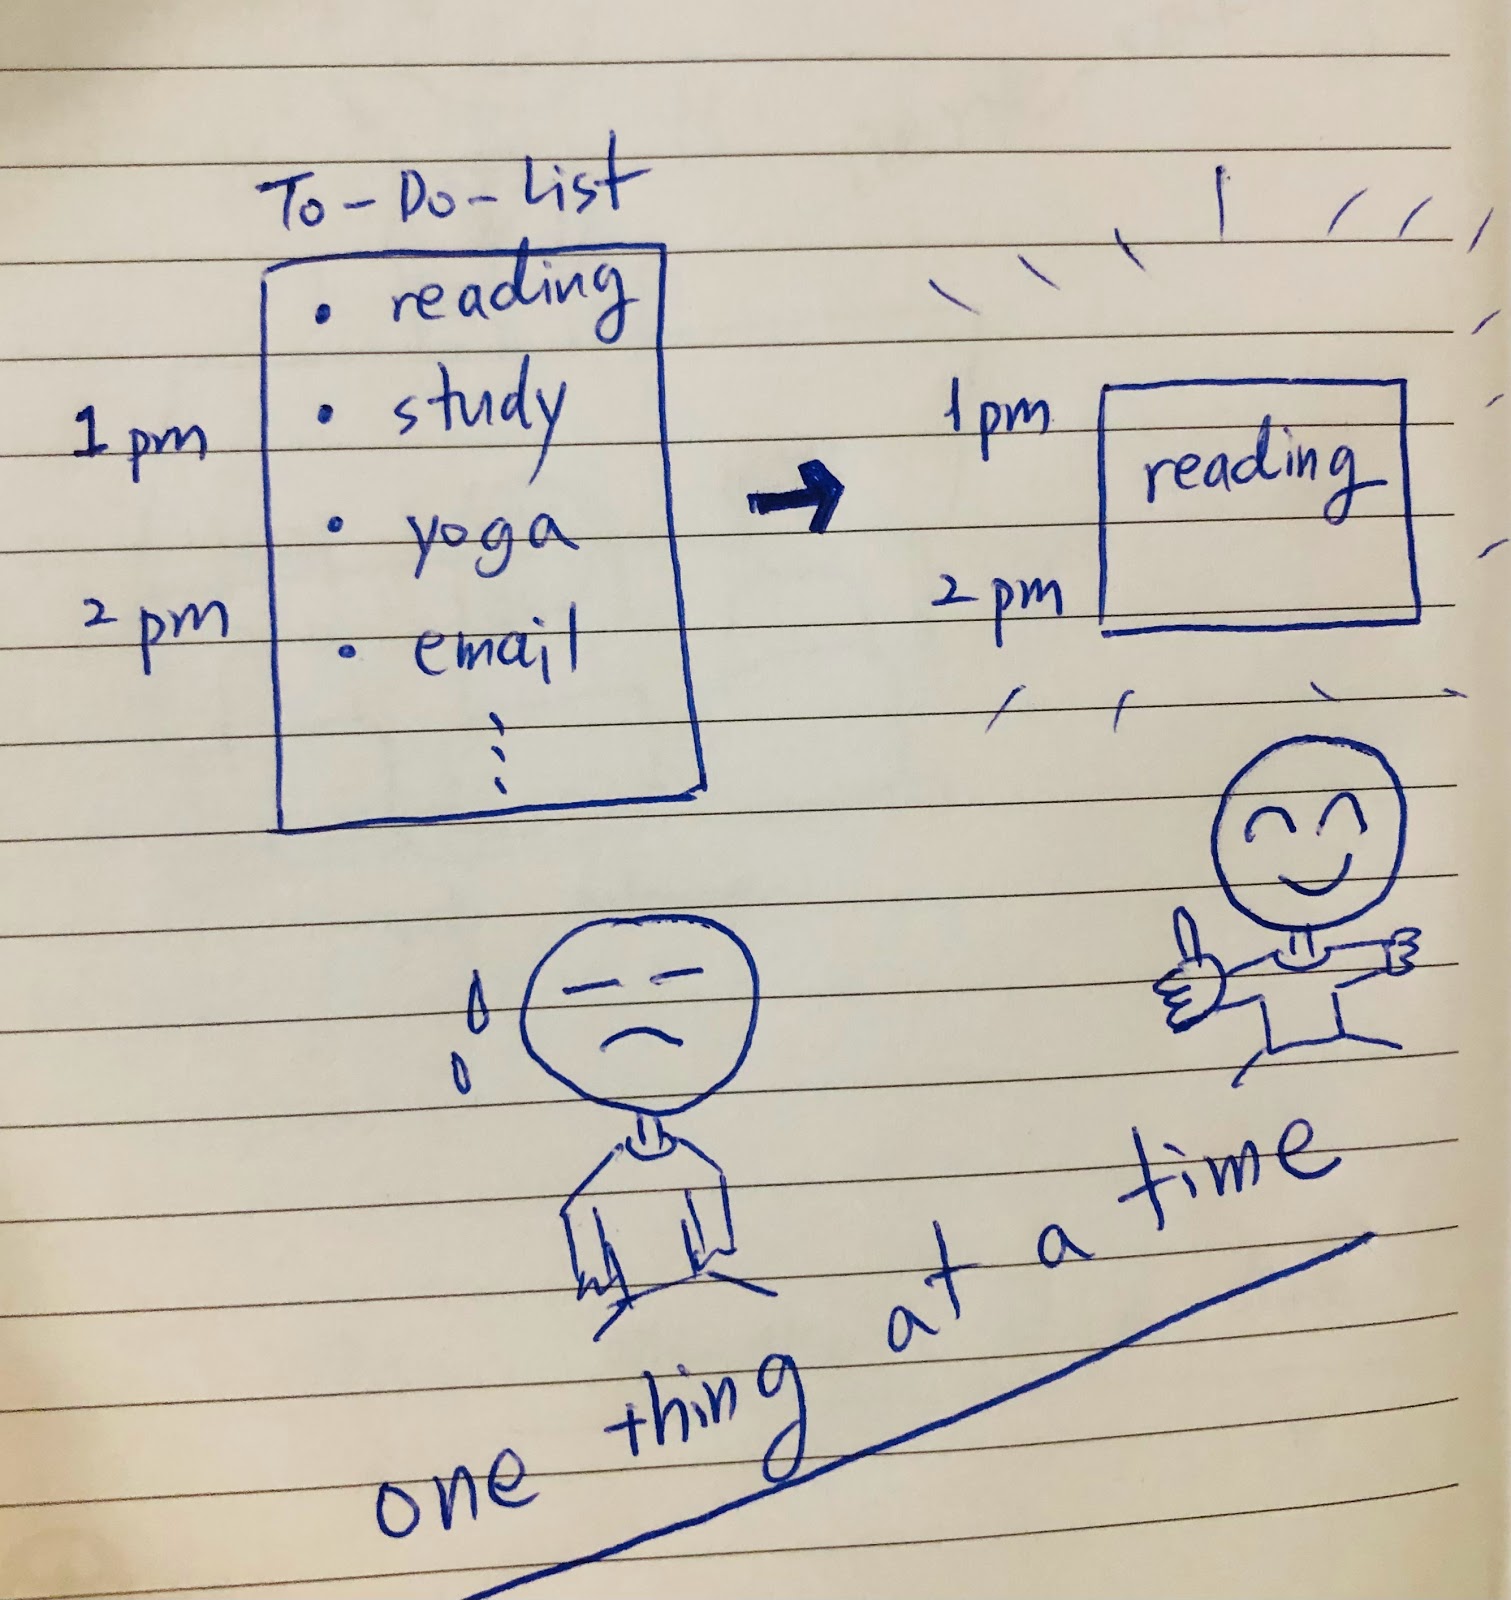 To-Do-List
• reading
• study
1 pm
• yoga
2 pm
• email
⋮
→
1 pm
reading
2 pm
one thing at a time